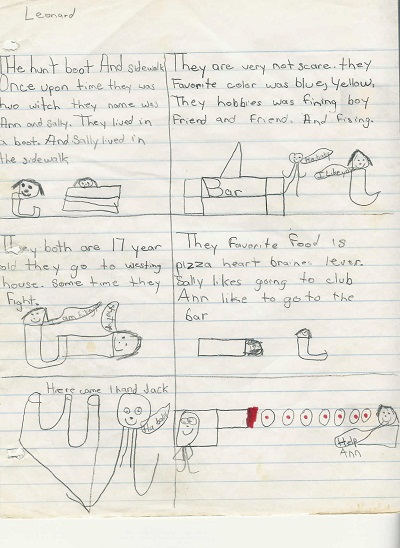 Leonard
The hunt boot And sidewalk
Once upon time they was
two witch they name was
Ann and Sally. They lived in
a boot. And Sally lived in
the sidewalk
They are very not scare. they
Favorite color was blue, Yellow.
They hobbies was fining boy
Friend and friend. And fixing.
Bar
Ha hay
I like you
They both are 17 year
old they go to westing
house. Some time they
fight.
They favorite food is
pizza heart braines lever.
Sally likes going to club
Ann like to go to the
bar
Here come 1 hand Jack
Ha hay
Help
Ann